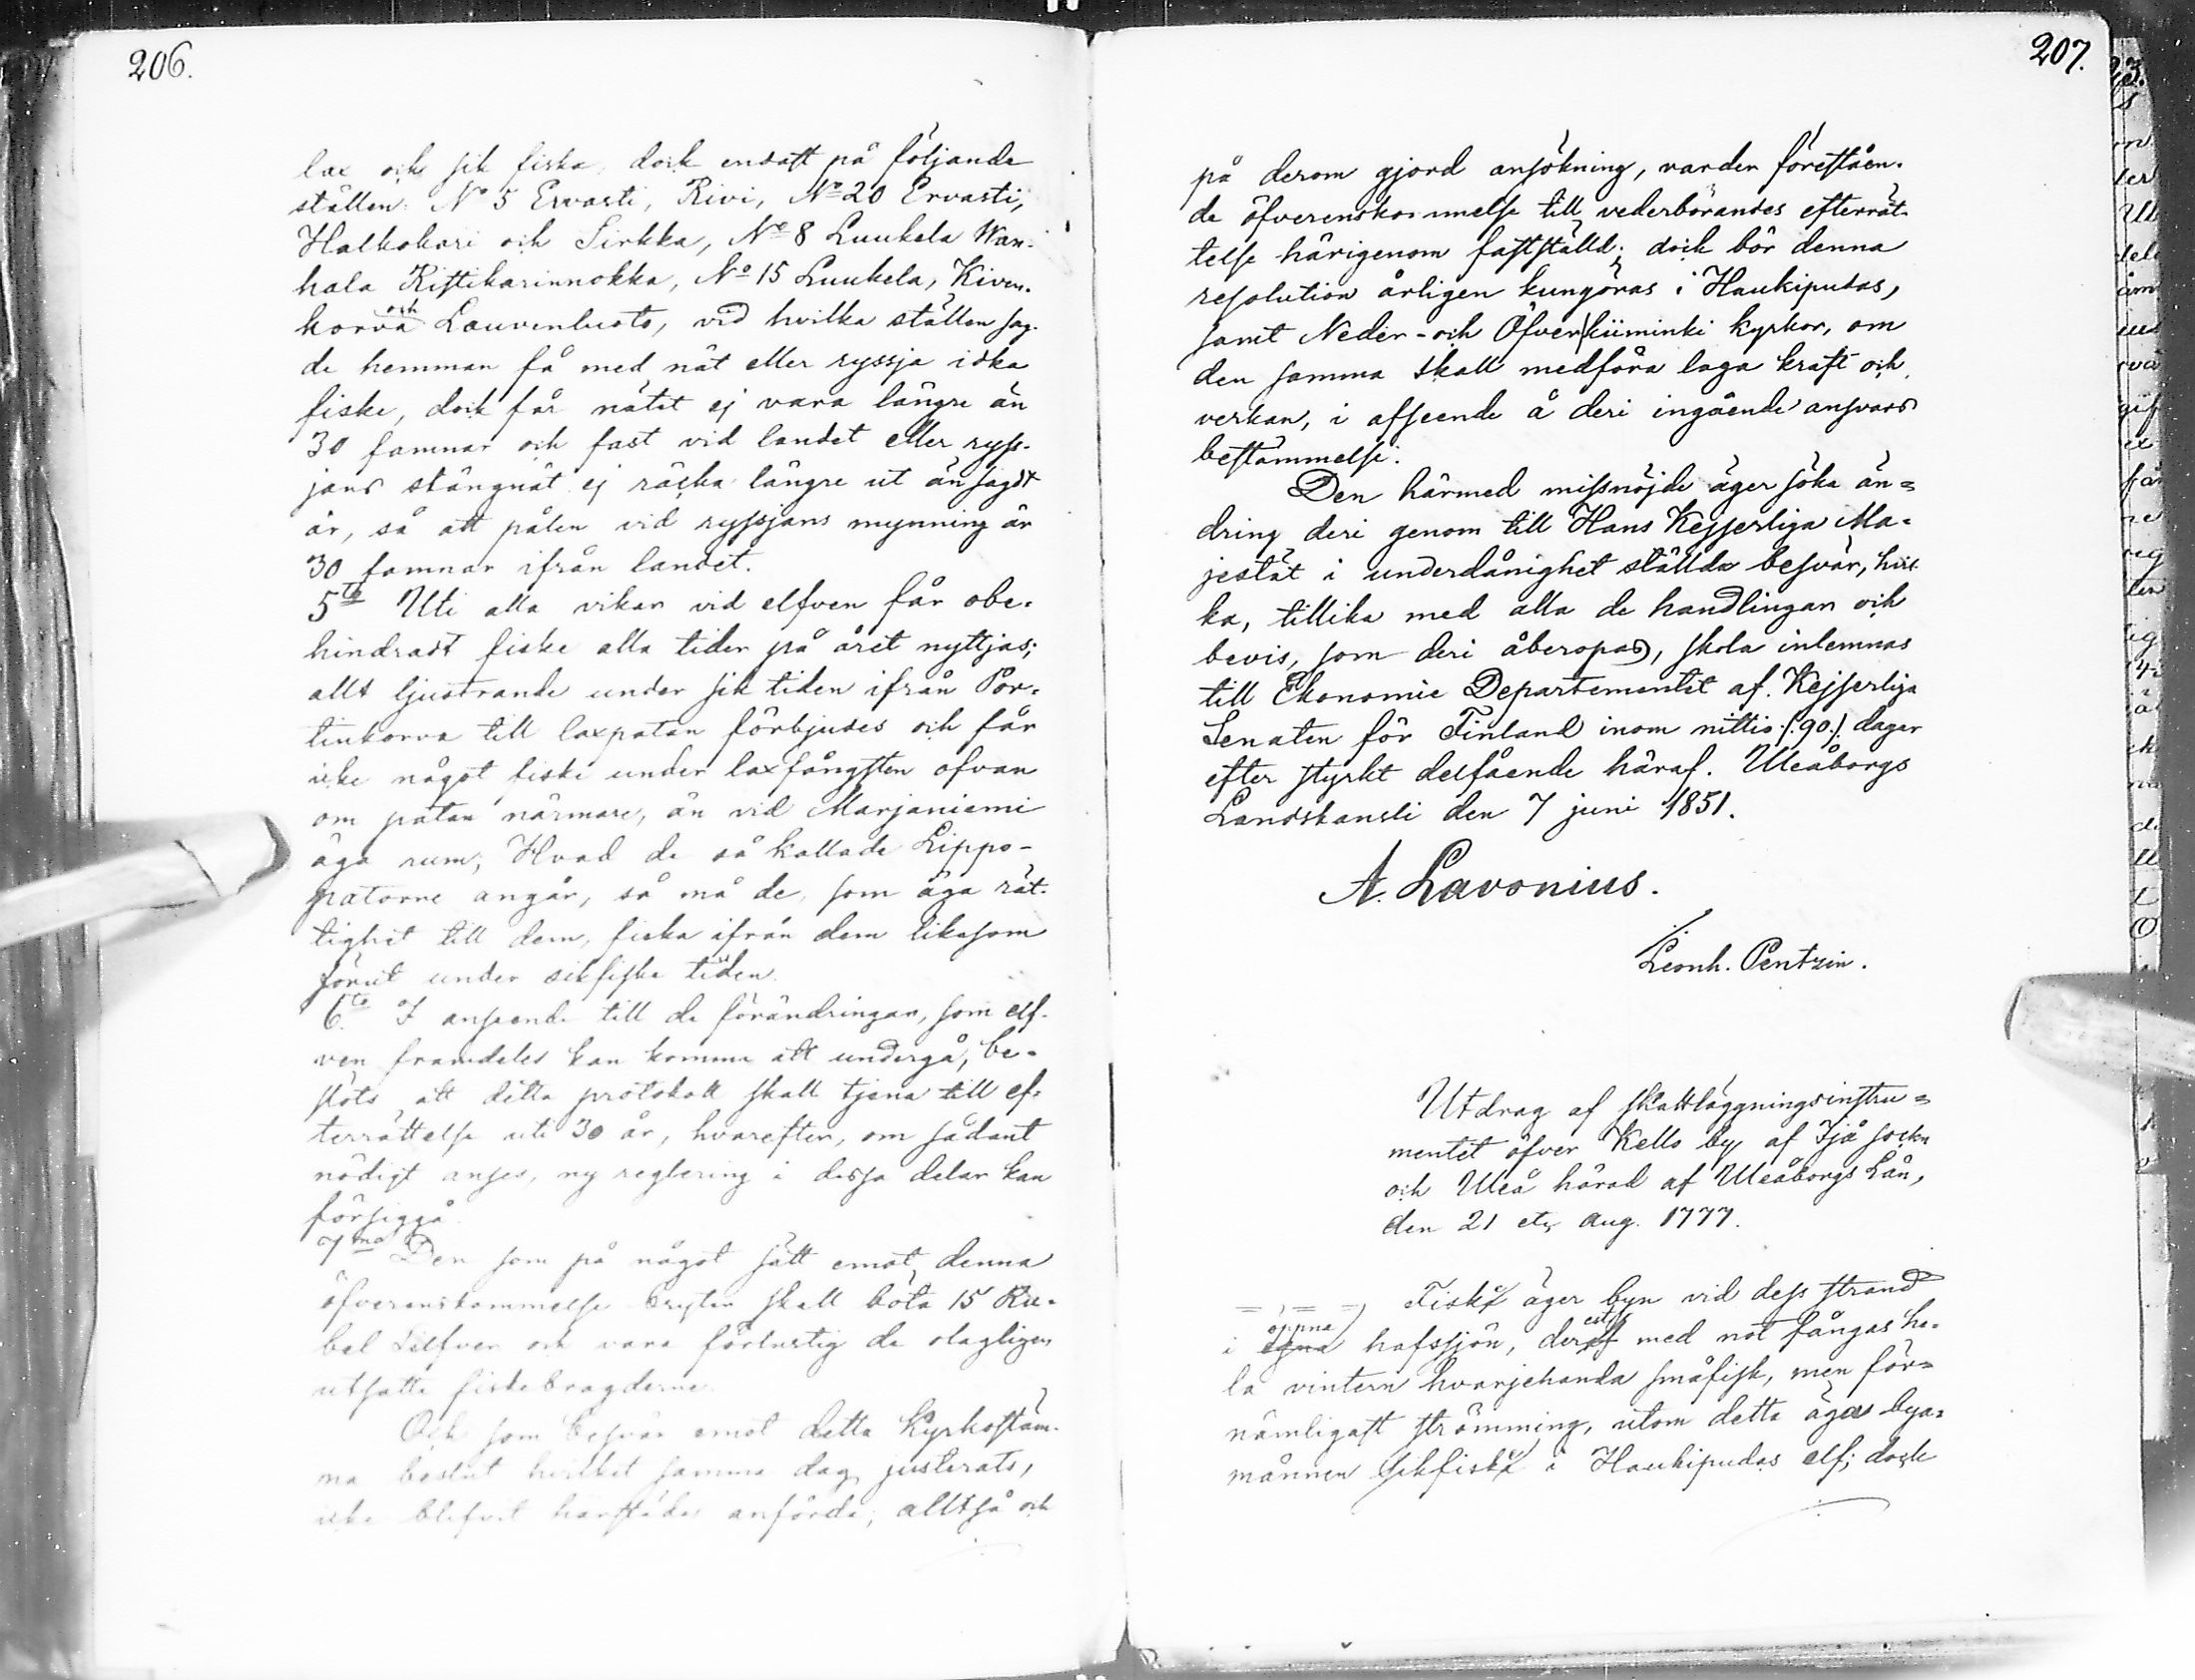 206.
lax och sik fiska, dock endast på följande
ställen: No 5 Ervasti, Kivi, No 20 Ervasti,
Halkokari och Sirkka, No 8 Luukela Wan-
hala Ristikarinnokka, No 15 Luukela, Kiven-
korva och Louvenluoto, vid hvilka ställen sag-
de hemman få med nät eller ryssja idka
fiske, dock får nätet ej vara längre än
30 famnar och fast vid landet eller ryss-
jans stängnät ej räcka längre ut än sagdt
är, så att pålen vid ryssjans mynning är
30 famnar ifrån landet.
5te Uti alla vikar vid elfven får obe-
hindradt fiske alla tider på året nyttjas;
allt ljustrande under sik tiden ifrån Por-
tinkorva till laxpatan förbjudes och får
icke något fiske under laxfångsten ofvan
om patan närmare, än vid Marjaniemi
äga rum; Hvad de så kallade Lippo-
patorne angår, så må de, som äga rät-
tighet till dem, fiska ifrån dem likasom
förut under sikfiske tiden.
6te I anseende till de förändringar, som elf-
ven framdeles kan komma att undergå, be-
slöts att detta protokoll skall tjena till ef-
terrättelse uti 30 år, hvarefter, om sådant
nödigt anses, ny reglering i dessa delar kan
försiggå.
7mo Den som på något sätt emot denna
öfverenskommelse bryter skall böta 15 Ru-
bel Silfver och vara förlustig de olagligen
utsatta fiskebragderne.
Och som besvär emot detta Kyrkostäm-
ma beslut hvilket samma dag justerats,
icke blifvit härstädes anförda; alltså och
207.
på derom gjord ansökning, varder föreståen-
de öfverenskommelse till vederbörandes efterrät-
telse härigenom fastställd; dock bör denna
resolution årligen kungöras i Haukipudas,
samt Neder- och Öfverkiiminki kyrkor, om
den samma skall medföra laga kraft och
verkan, i afseende å deri ingående ansvars
bestämmelse.
Den härmed missnöjde äger söka än=
dring deri genom till Hans Kejserliga Ma-
jestät i underdånighet ställda besvär, hvil
ka, tillika med alla de handlingar och
bevis, som deri åberopas, skola inlemnas
till Ekonomie Departementet af Kejserliga
Senaten för Finland inom nittio (:90:) dagar
efter styrkt delfående häraf. Uleåborgs
Landskansli den 7 juni 1851.
A. Lavonius.
/. Leonh. Pentzin.
Utdrag af skattläggningsinstru=
mentet öfver Kello by af Ijå sockn
och Uleå härad af Uleåborgs Län,
den 21 etc aug. 1777.
= , = = , Fiske äger byn vid dess strand
öppna
i egna hafssjön, med not fångas he-
la vintern hvarjehanda småfisk, men för=
nämligast strömming, utom detta äga bya=
männen sikfiske i Haukipudas elf; dock